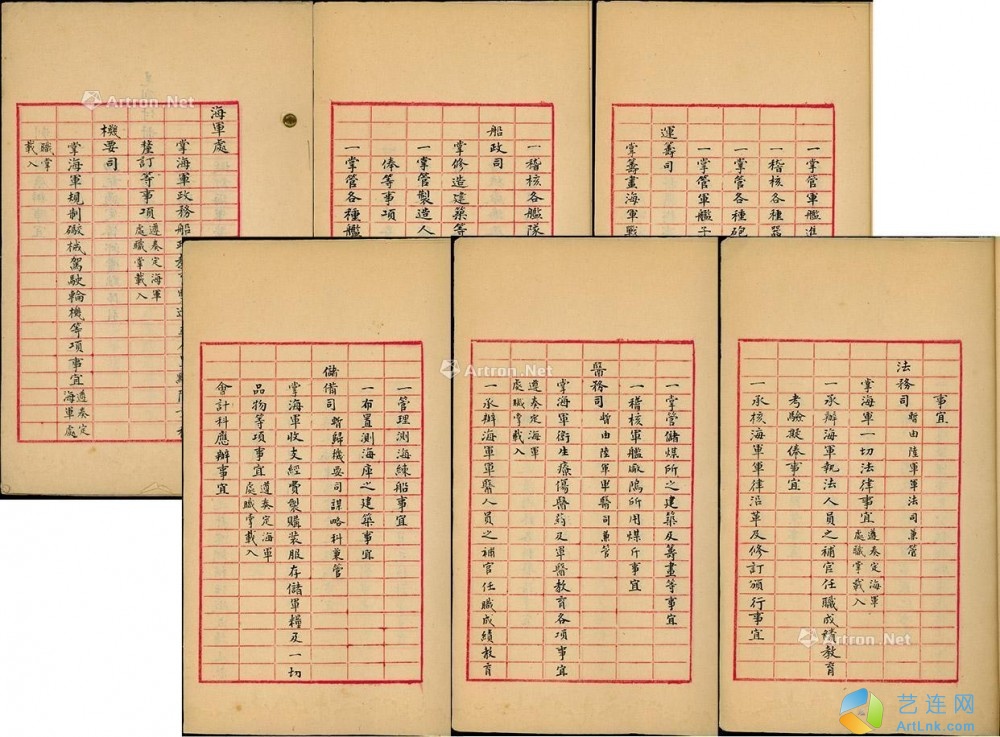 海軍處
掌海軍政務船
釐訂等事項遵奏定海軍處職掌載入
機要司
掌海軍規制礮械駕駛輪機等項事宜遵奏定海軍處
職掌載入
一稽核各艦隊
船政司
掌修造建築等
一掌管製造人
俸等事項
一掌管各種艦
一掌管軍艦進
一稽核各種器
一掌管各種砲
一掌管軍艦子
運籌司
掌籌畫海軍戰
一管理測海練船事宜
一布置測海庫之建築事宜
儲備司暫歸機要司謀略科兼管
掌海軍收支經費製購裝服存儲軍糧及一切
品物等項事宜遵奏定海軍處職掌載入
會計科應辦事宜
一掌管儲煤所之建築及籌畫等事宜
一稽核軍艦廠隖所用煤斤事宜
醫務司暫由陸軍軍醫司兼管
掌海軍衛生療傷醫葯及軍醫教育各項事宜
遵奏定海軍處職掌載入
一承辦海軍軍醫人員之補官任職成績教育
事宜
法務司暫由陸軍軍法司兼管
掌海軍一切法律事宜遵奏定海軍處職掌載入
一承辦海軍執法人員之補官任職成績教育
考驗擬俸事宜
一承核海軍軍律沿革及修訂頒行事宜
Artron.Net
Artron.Net
Artron.Net
艺连网
ArtLnk.com